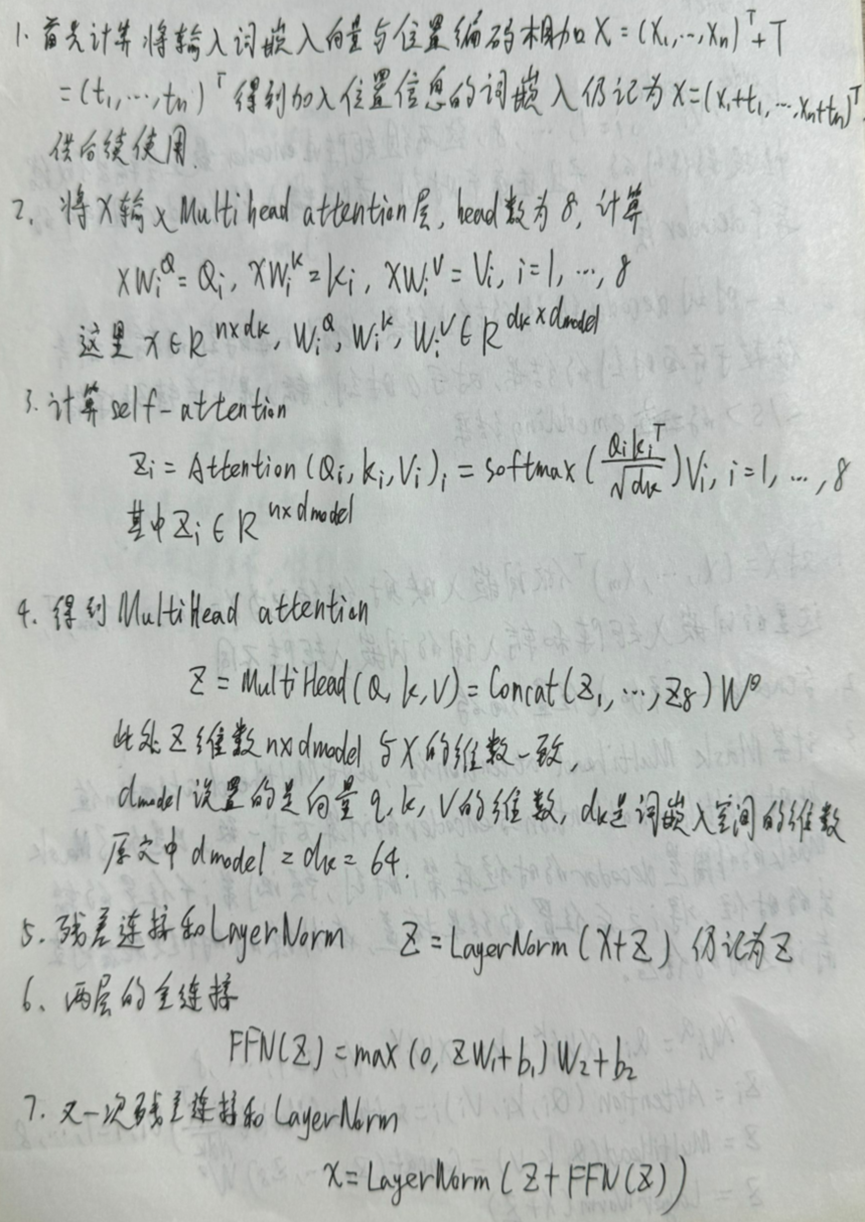 1. 首先计算将输入词嵌入向量与位置编码相加 X = (x₁,…,xₙ)ᵀ + T
= (t₁,…,tₙ)ᵀ 得到加入位置信息的词嵌入仍记为 X = (x₁+t₁,…,xₙ+tₙ)ᵀ.
供后续使用.
2. 将X输入Multihead attention层, head数为8, 计算
XWᵢ^Q = Qᵢ, XWᵢ^K = Kᵢ, XWᵢ^V = Vᵢ, i=1, …, 8
这里 X∈R^{n×dk}, Wᵢ^Q, Wᵢ^K, Wᵢ^V ∈ R^{dk×dmodel}
3. 计算self-attention
Zᵢ = Attention(Qᵢ, Kᵢ, Vᵢ)ᵢ = softmax(QᵢKᵢᵀ/√dk)Vᵢ, i=1, …, 8
其中Zᵢ∈R^{n×dmodel}
4. 得到 MultiHead attention
Z = MultiHead(Q, K, V) = Concat(Z₁, …, Z₈) W⁰
此处Z维数n×dmodel与X的维数一致,
dmodel设置的是向量q, k, v的维数, dk是词嵌入空间的维数
原文中dmodel = dk = 64.
5. 残差连接和LayerNorm Z = LayerNorm(X+Z) 仍记为Z
6、两层的全连接
FFN(Z) = max(0, ZW₁+b₁)W₂+b₂
7. 又一次残差连接和LayerNorm
X = LayerNorm(Z+FFN(Z))